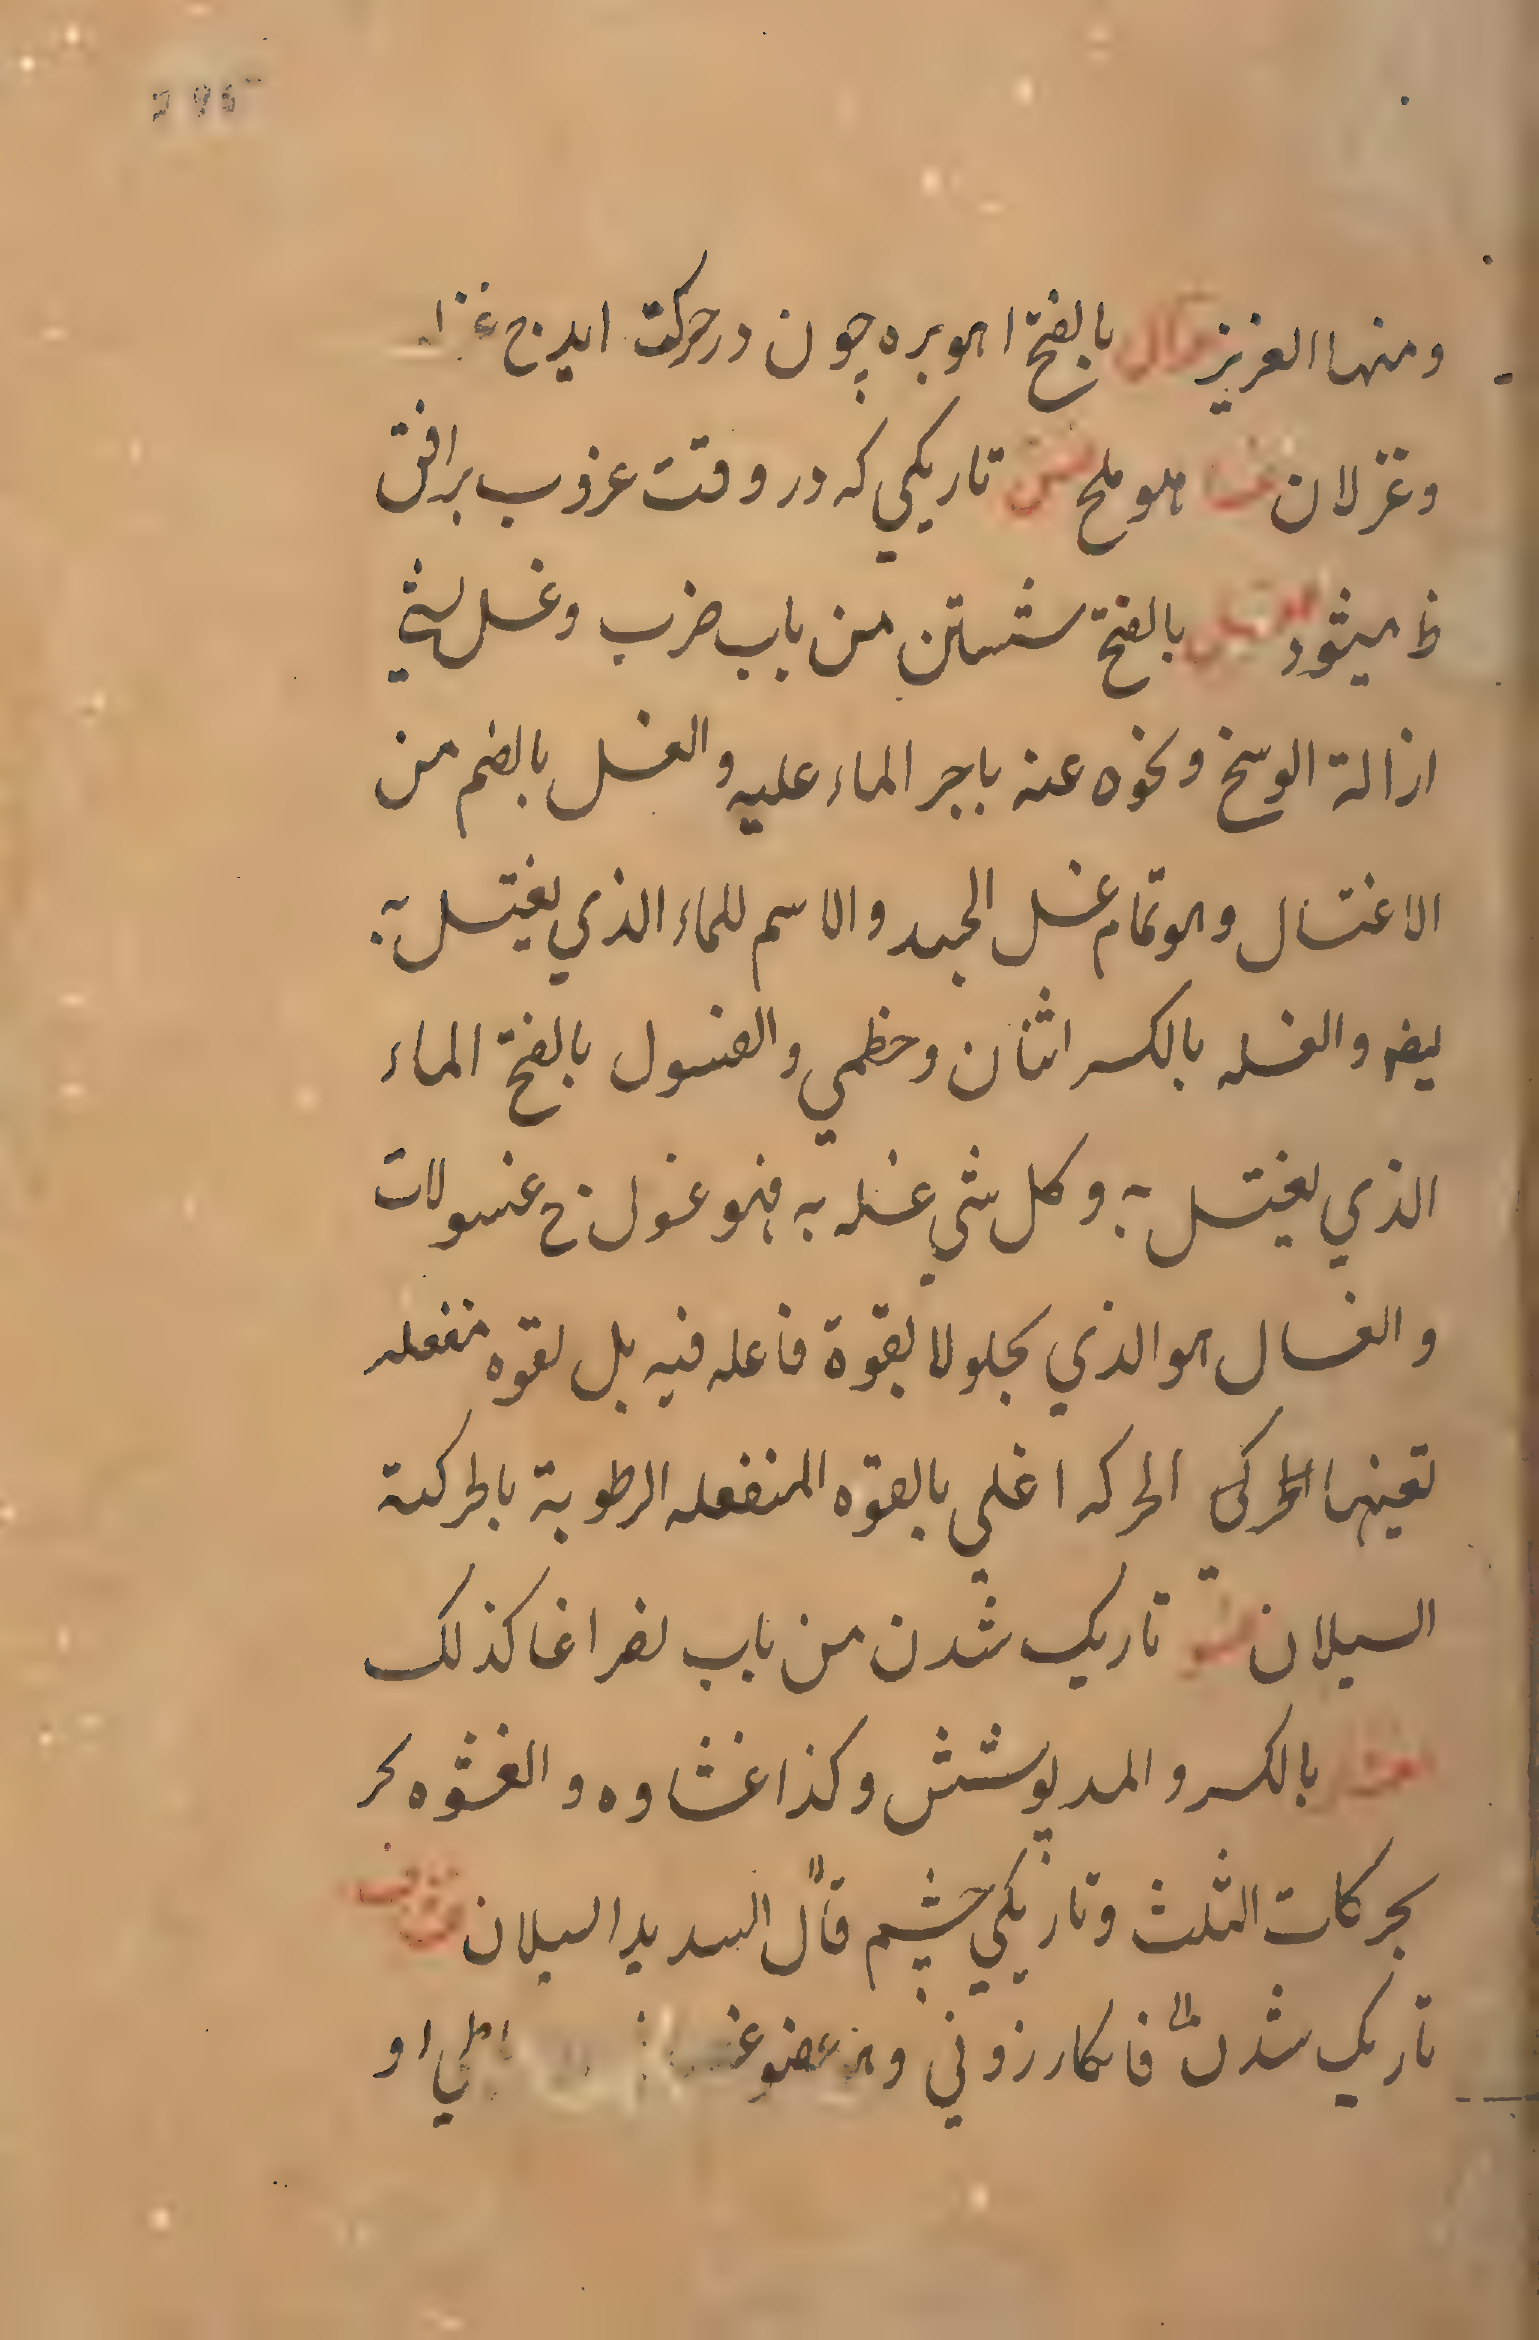 ومنها العزيز غزال بالفتح اهو بره چون در حركت ايد ج غزا
وغزلان هو ملح تاريكي كه در وقت غروب برافق
ظ ميشود بالفتح شستن من باب ضرب وغسل لشي
ازالة الوسخ ونحوه عنه باجر الماء عليه والغسل بالضم من
الاغتسال وهو تمام غسل الجسد والاسم للماء الذي يغتسل به
ايضه والغسله بالكسر اثنان وخطمي والغسول بالفتح الماء
الذي يغتسل به وكل شي غسله به فهو غسول ج غسولات
والغسال هو الذي يجلو لا بقوة فاعله فيه بل لقوه منفعله
تعينها الحركة اعلي بالقوه المنفعله الرطوبة بالحركة
السيلان تاريك شدن من باب نصر اغسا كذلك
بالكسر والمد پوشش وكذا غشاوه والغشوه
بحركات الثلث وتاريكي چشم قال السديد السيلان
تاريك شدن قال فا كارزوني وهر عضو او